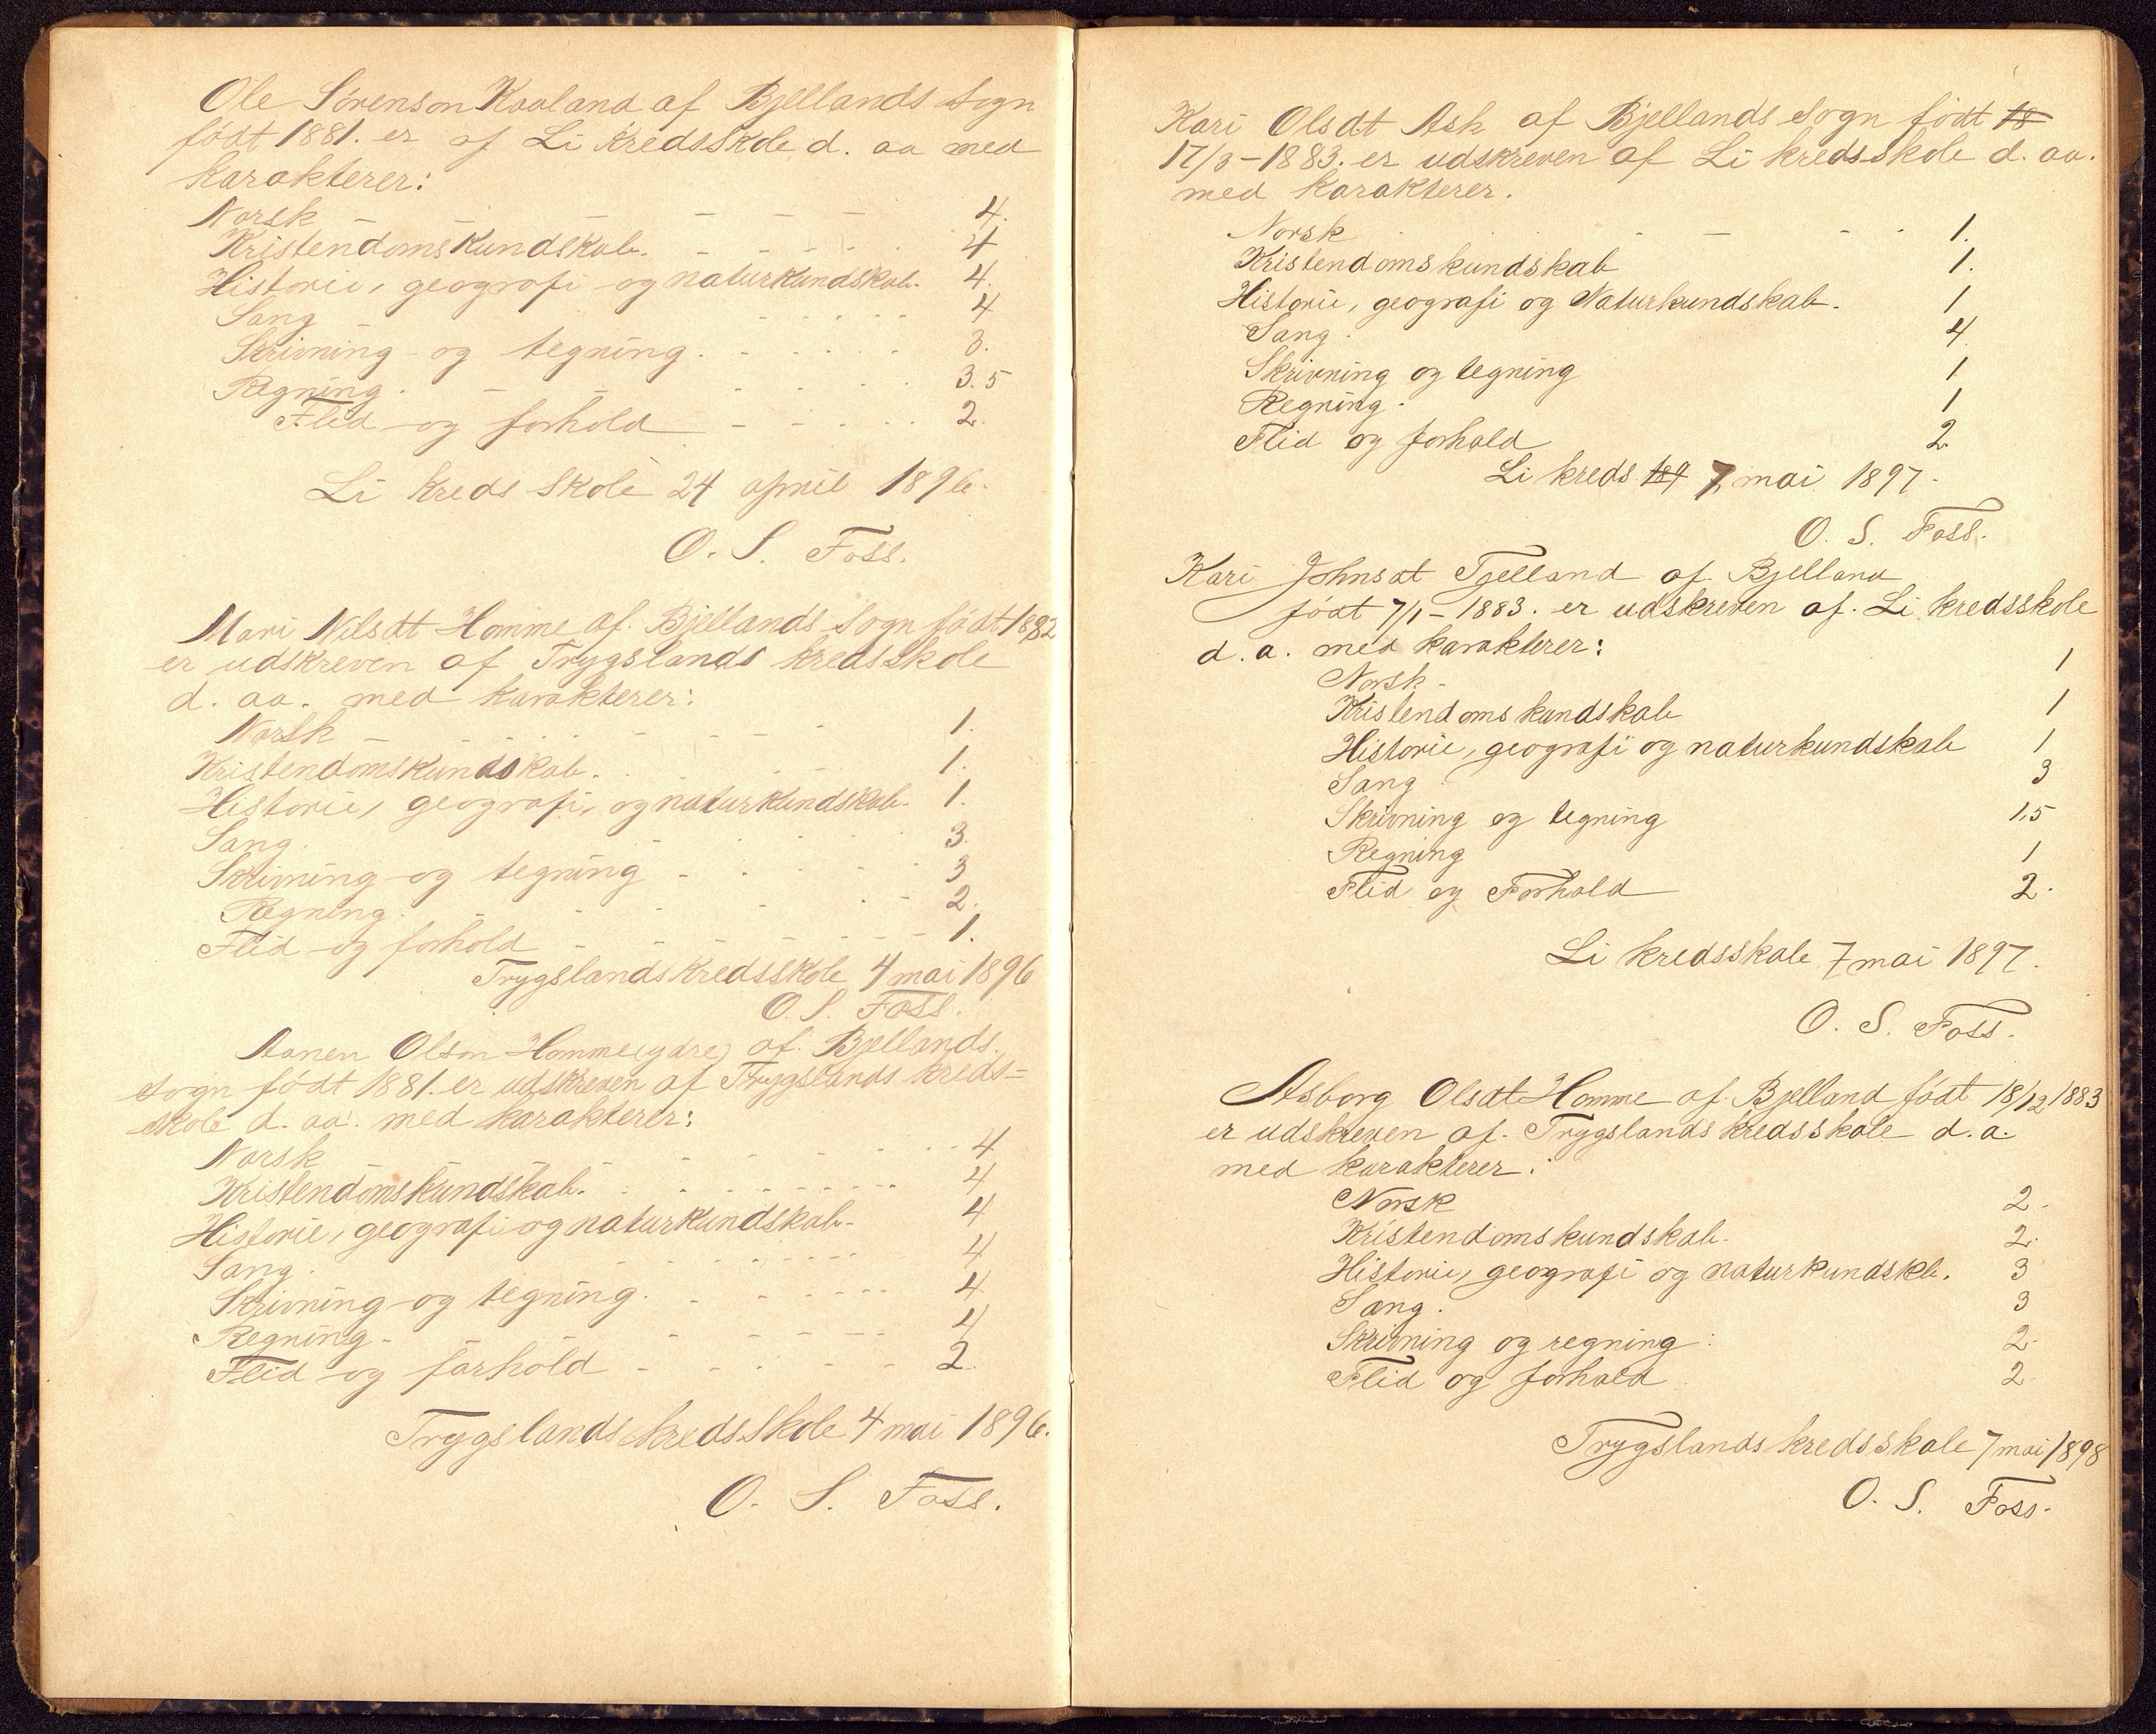 Ole Sørenson Kvaland af Bjellands Sogn
født 1881. er af Li kredsskole d. aa med
karakterer:
Norsk - - - - - - 4.
Kristendomskundskab. - - - - - 4
Historie, geografi og naturkundskab. 4.
Sang - - - - - - 4
Skrivning og tegning. - - - - - 3.
Regning. - - - - - - 3.5
Flid og forhold - - - - - 2.
Li kreds skole 24 april 1896.
O. S. Foss.
Mari Nilsdt Homme af Bjellands Sogn født 1882
er udskreven af Trygslands kredsskole
d. aa. med karakterer:
Norsk - - - - - - 1.
Kristendomskundskab. - - - - 1.
Historie, geografi, og naturkundskab. 1.
Sang. - - - - - 3.
Skrivning og tegning - - - - - 3
Regning. - - - - - - 2.
Flid og forhold - - - - - - - 1.
Trygslandskredsskole 4 mai 1896
O. S. Foss.
Aanen Olson Homme (ydre) af Bjellands.
Sogn født 1881. er udskreven af Trygslands kreds=
skole d. aa. med karakterer:
Norsk - - - - - - 4
Kristendomskundskab. - - - - - - 4
Historie, geografi og naturkundskab - 4
Sang. - - - - - - 4
Skrivning og tegning. - - - - - 4
Regning - - - - - - 4
Flid og forhold - - - - - - 2.
Trygslands kredsskole 4 mai 1896.
O. S. Foss.
Kari Olsdt Ask af Bjellands Sogn født 18
17/3 - 1883. er udskreven af Li kredsskole d. aa.
med karakterer.
Norsk - - - - - 1.
Kristendomskundskab 1.
Historie, geografi og Naturkundskab. 1
Sang. 4
Skrivning og tegning 1
Regning. 1
Flid og forhold 2.
Li kreds 189 7. mai 1897.
O. S. Foss.
Kari Johnsdt Tjelland af Bjelland
født 7/1 - 1883. er udskreven af Li kredsskole
d. a. med karakterer:
Norsk - 1
Kristendomskundskab 1
Historie, geografi og naturkundskab 1
Sang 3
Skrivning og tegning 1,5
Regning 1
Flid og Forhold 2.
Li kredsskole 7 mai 1897.
O. S. Foss.
Asborg Olsdt Homme af Bjelland født 18/12 1883
er udskreven af Trygslands kredsskole d. a.
med karakterer:
Norsk 2.
Kristendomskundskab. 2.
Historie, geografi og naturkundskb. 3
Sang. 3
Skrivning og regning: 2.
Flid og forhold 2
Trygslands kredsskole 7 mai 1898
O. S. Foss.